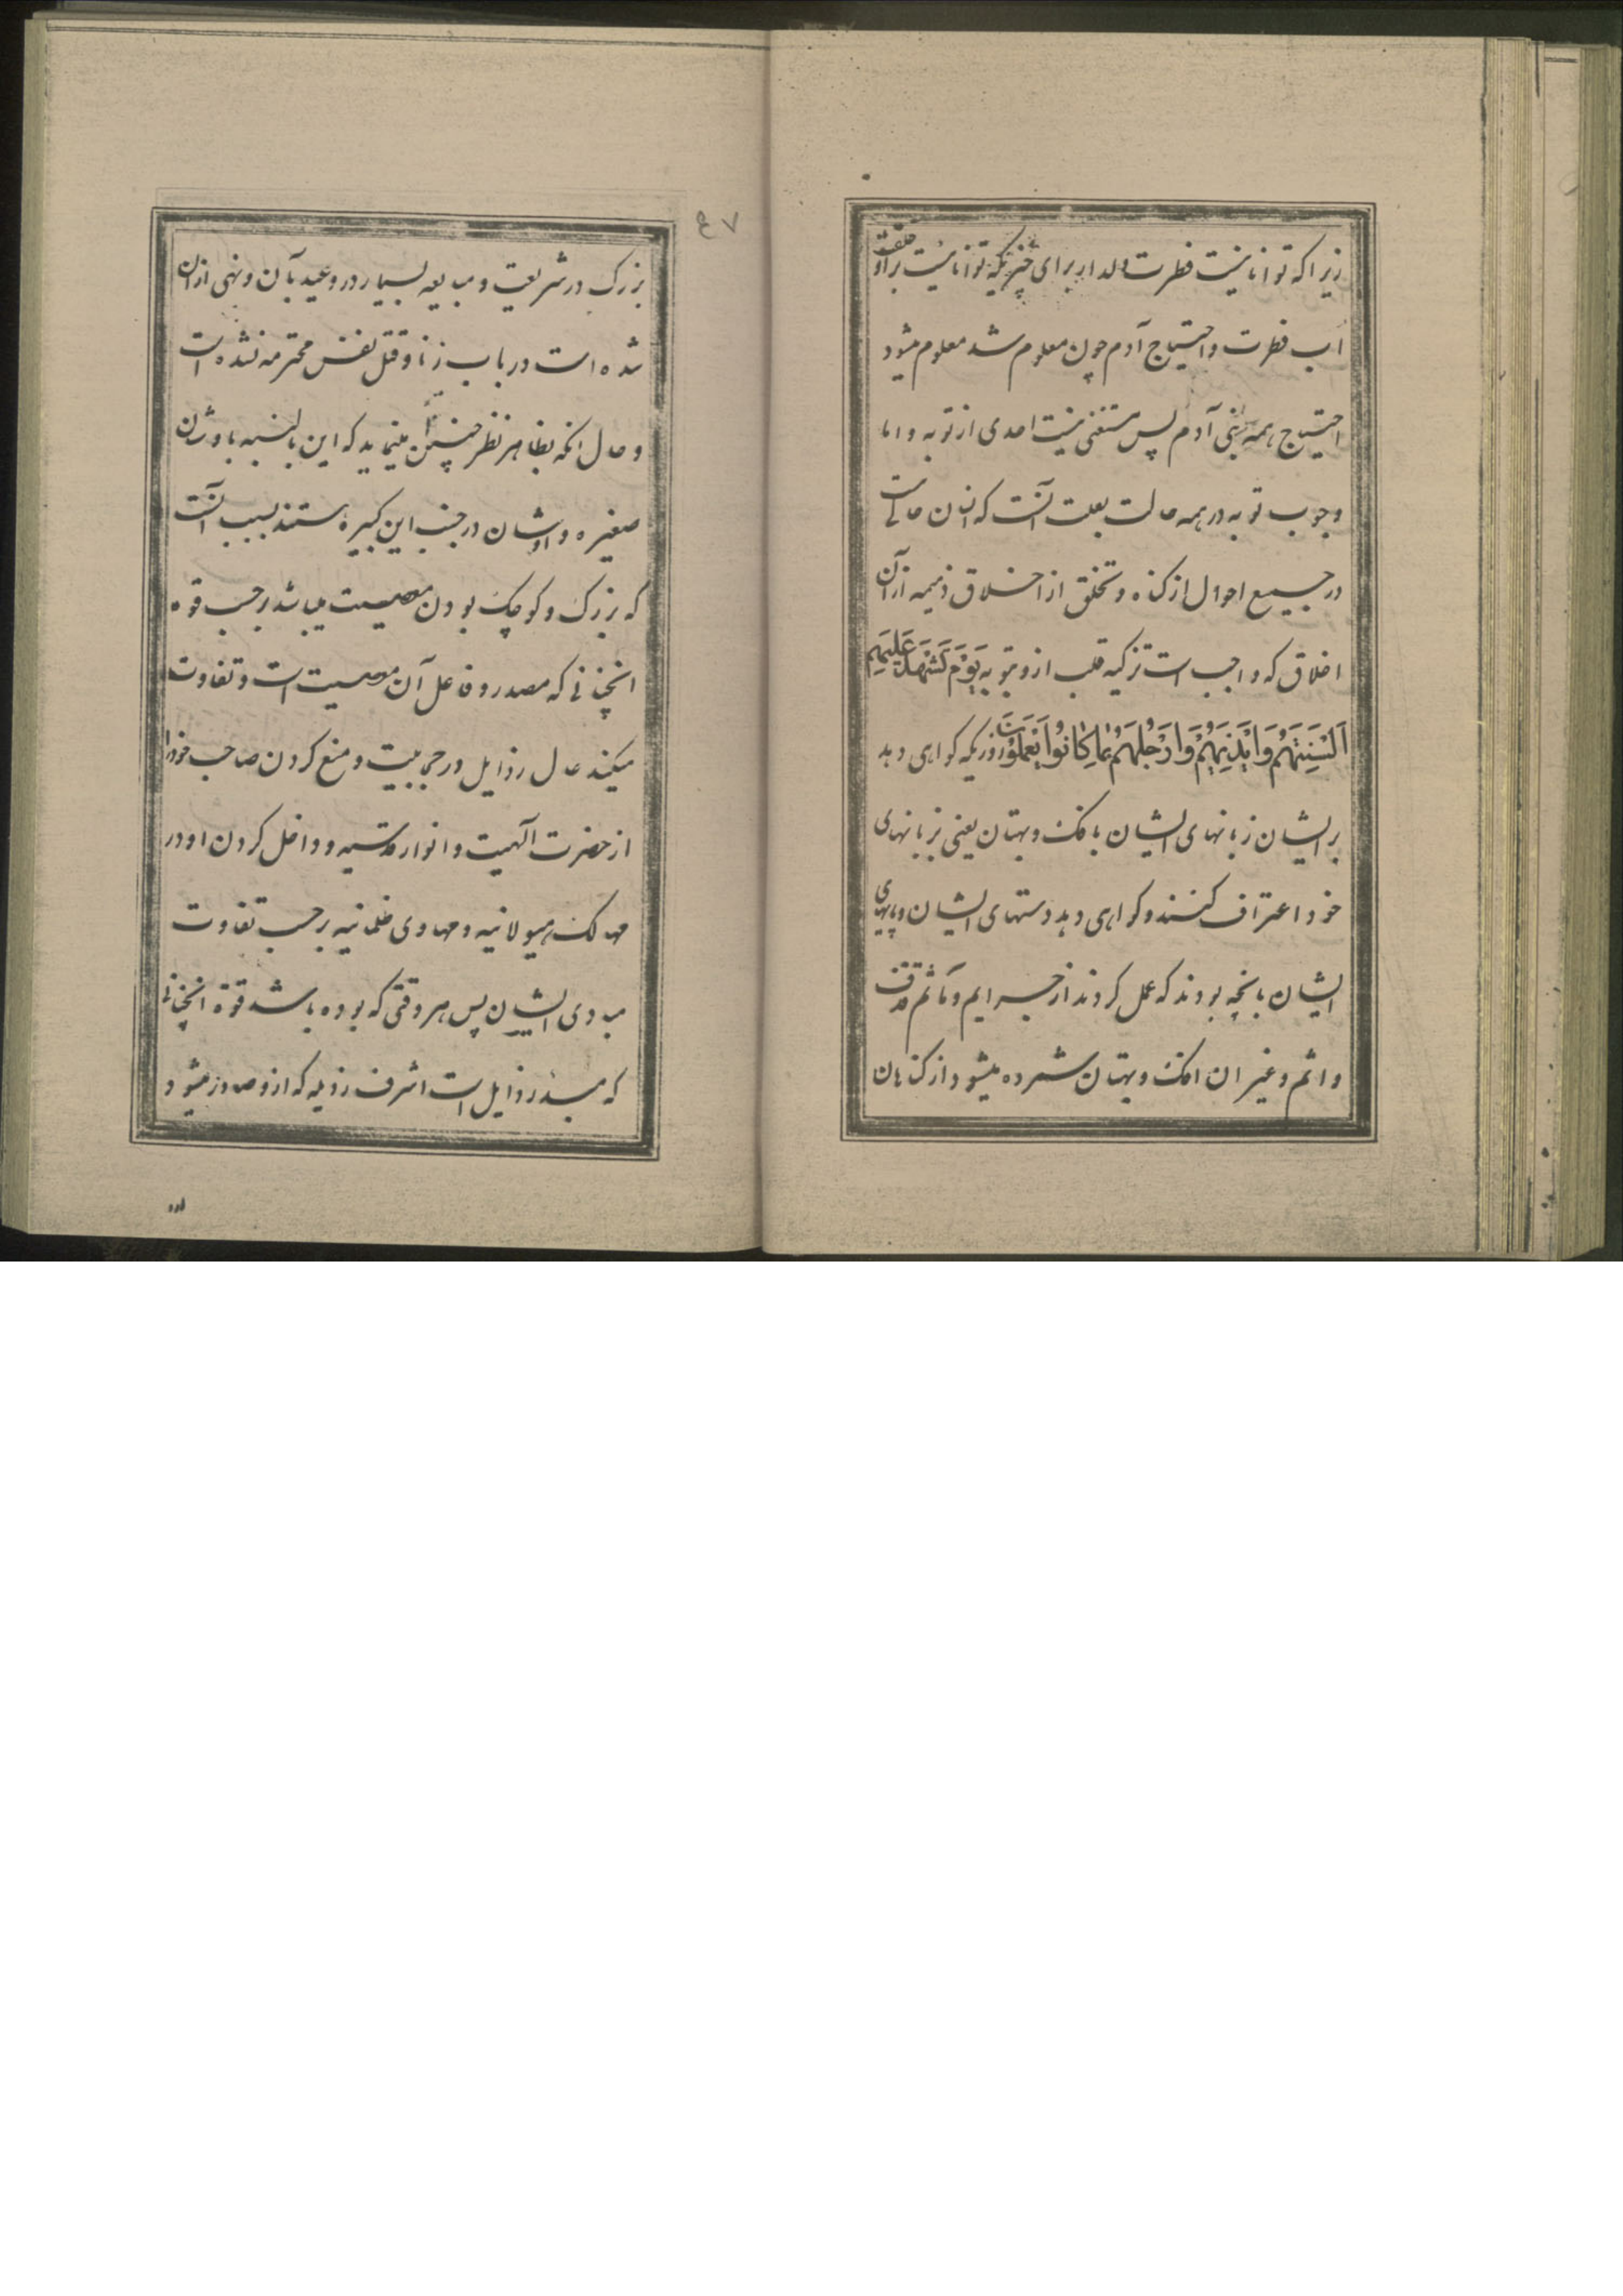 زیرا که توانا نیست فطرت ولد از برای چیزیکه توانا نیست بر او خلقت
اب فطرت و احتیاج آدم چون معلوم شد معلوم میشود
احتیاج همه بنی آدم پس مستغنی نیست احدی از توبه و اما
وجوب توبه در همه حالت بعلت آنست که انسان خالی نیست
در جمیع احوال از کناه و تخلق از اخلاق ذمیمه از آن
اخلاق که واجب است تزکیه قلب از و بتوبه یَوْمَ تَشْهَدُ عَلَیْهِمْ
اَلْسِنَتُهُمْ وَاَیْدِیهِمْ وَاَرْجُلُهُمْ بِمَا کَانُوا یَعْمَلُونَ روزیکه کواهی دهد
بر ایشان زبانهای ایشان بافک و بهتان یعنی بزبانهای
خود اعتراف کنند و کواهی دهد دستهای ایشان و پاهای
ایشان بانچه بودند که عمل کردند از جرایم و مآثم قذف
و اثم و غیر ان افک و بهتان شمرده میشود از کناهان
٤٧
بزرک در شریعت و مبالغه بسیار در وعید بآن و نهی ازان
شده است در باب زنا و قتل نفس محترمه نشده است
و حال انکه بظاهر نظر چنین مینماید که این بالنسبه باوشان
صغیره و اوشان در جنب این کبیره هستند بسبب آنست
که بزرک و کوچک بودن معصیت میباشد بر حسب قوه
انچنانی که مصدر و فاعل آن معصیت است و تفاوت
میکند حال رذایل در حجابیت و منع کردن صاحب خود را
از حضرت آلهیت و انوار قدسیه و داخل کردن او در
مهالک هیولانیه و مهاوی ظلمانیه بر حسب تفاوت
مبادی ایشان پس هر وقتی که بوده باشد قوة انچنانی
که مبدء رذایل است اشرف رذیله که ازو صادر میشود